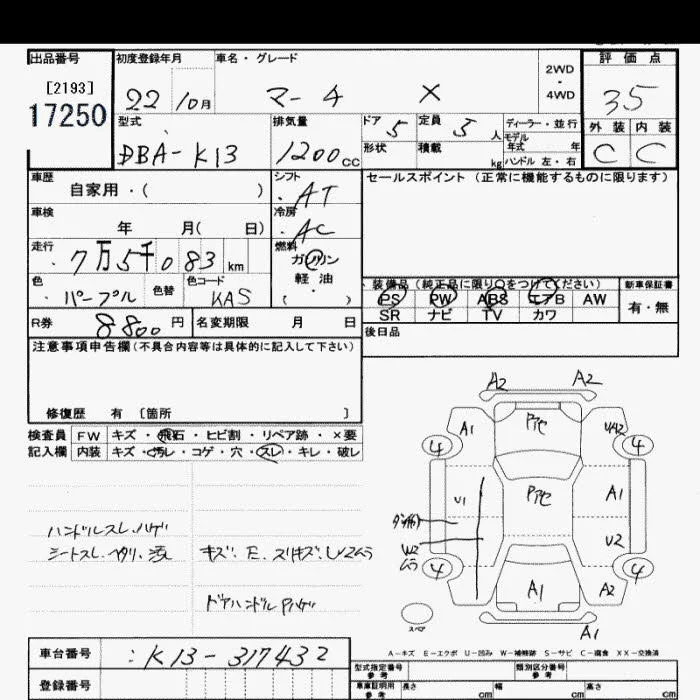 出品番号 初度登録年月 車名・グレード 2WD・4WD 評価点
[2193]
17250
22 10月 マーチ X 35
型式 排気量 ドア 5 定員 5人 ディーラー・並行
DBA-K13 1200cc 形状 積載 kg モデル年式 年 ハンドル 左・右
外装 内装
C C
車歴 自家用・( ) シフト AT セールスポイント(正常に機能するものに限ります)
車検 年 月( 日) 冷房 AC
走行 7万5千083km 燃料 ガソリン
軽油
( )
色 パープル 色替 色コード KAS
装備品(純正品に限り○をつけてください) 新車保証書
PS PW ABS エアB AW 有・無
SR ナビ TV カワ
R券 8800円 名変期限 月 日 後日品
注意事項申告欄(不具合内容等は具体的に記入して下さい)
修復歴 有 [箇所 ]
検査員 FW キズ・飛石・ヒビ割・リペア跡・×要
記入欄 内装 キズ・汚レ・コゲ・穴・スレ・キレ・破レ
ハンドルスレ、ハゲ
シートスレ・ヘタリ・
キズ・E・スリキズ・
ドアハンドルPハゲ
A2 A2
A1
4 4
U1 A1
W2
ムラ U2
4 4
A1 A2
A1
スペア
A-キズ E-エクボ U-凹み W-補修跡 S-サビ C-腐食 XX-交換済
車台番号 :K13-317432
登録番号
型式指定番号 参考 類別区分番号 参考
車庫証明用 参考 長さ cm 幅 cm 高さ cm